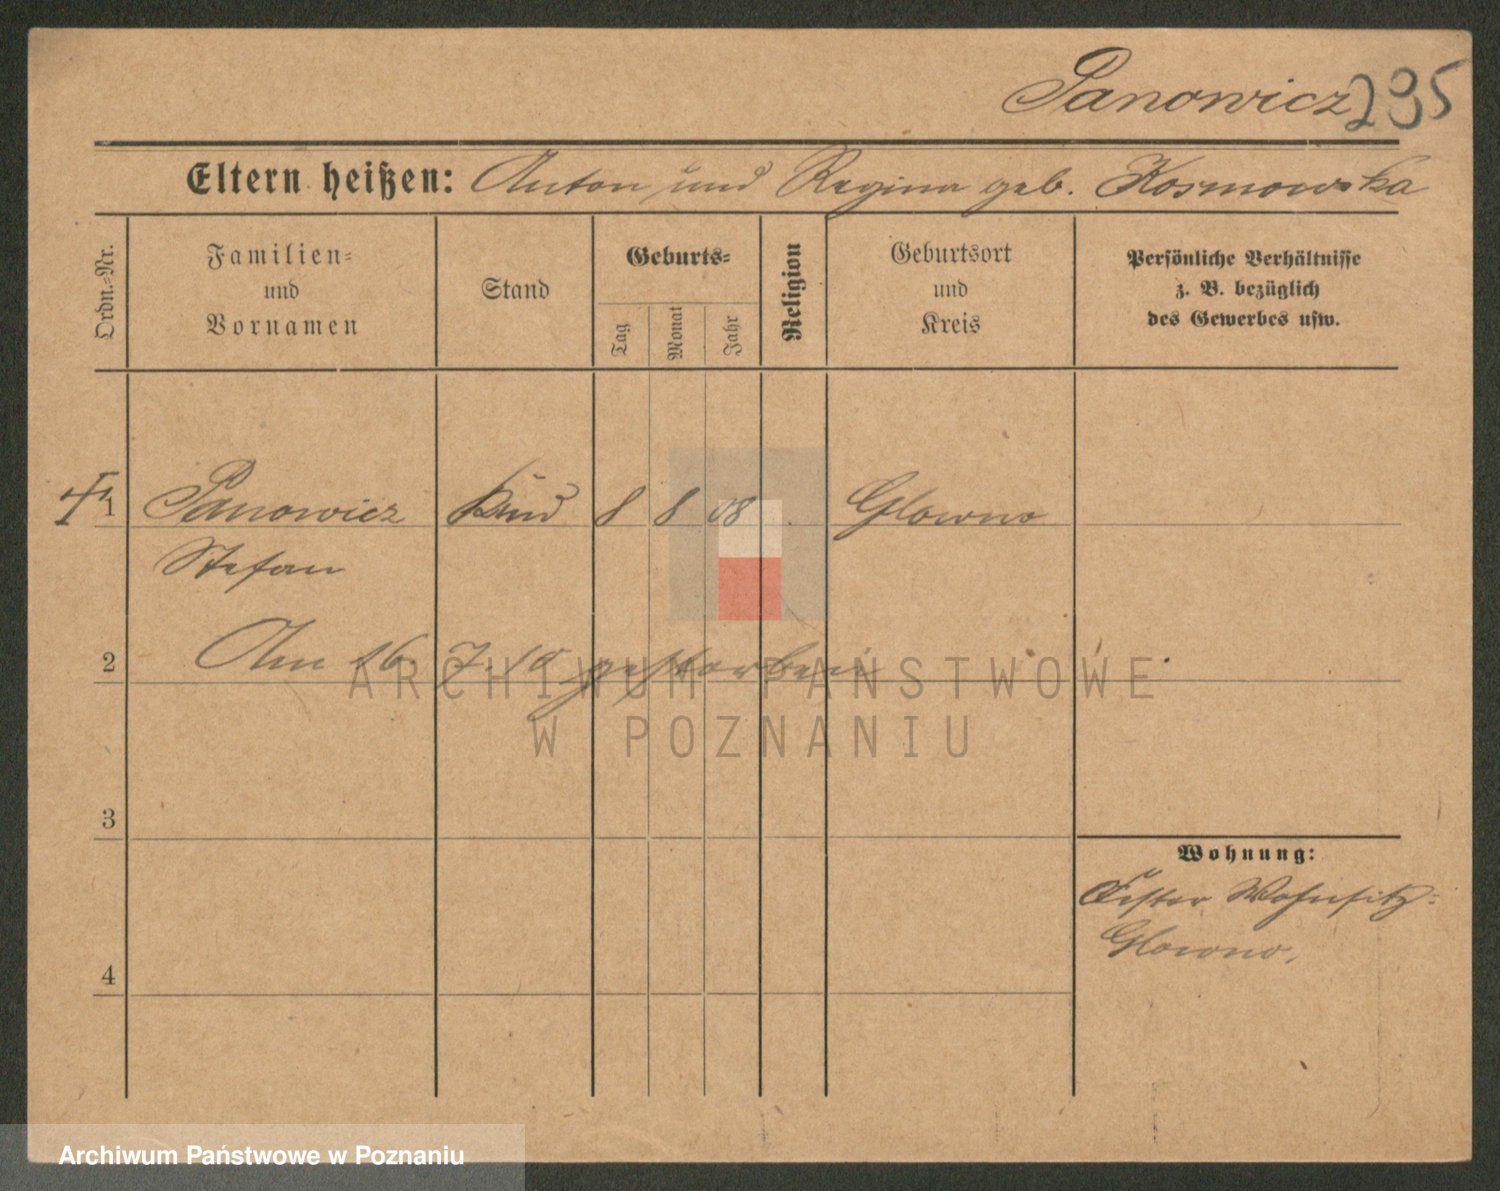 Panowicz 295
Eltern heißen: Anton und Regina geb. Kosmowska
Ordn.-Nr.
Familien-
und
Vornamen
Stand
Geburts-
Tag
Monat
Jahr
Religion
Geburtsort
und
Kreis
Persönliche Verhältnisse
z. B. bezüglich
des Gewerbes usw.
1 Panowicz Kind 8 8 08 Glowno
Stefan
2 Am 16 7. 10 gestorben
ARCHIWUM PAŃSTWOWE
W POZNANIU
3
Wohnung:
Fester Wohnsitz:
Glowno.
4
Archiwum Państwowe w Poznaniu